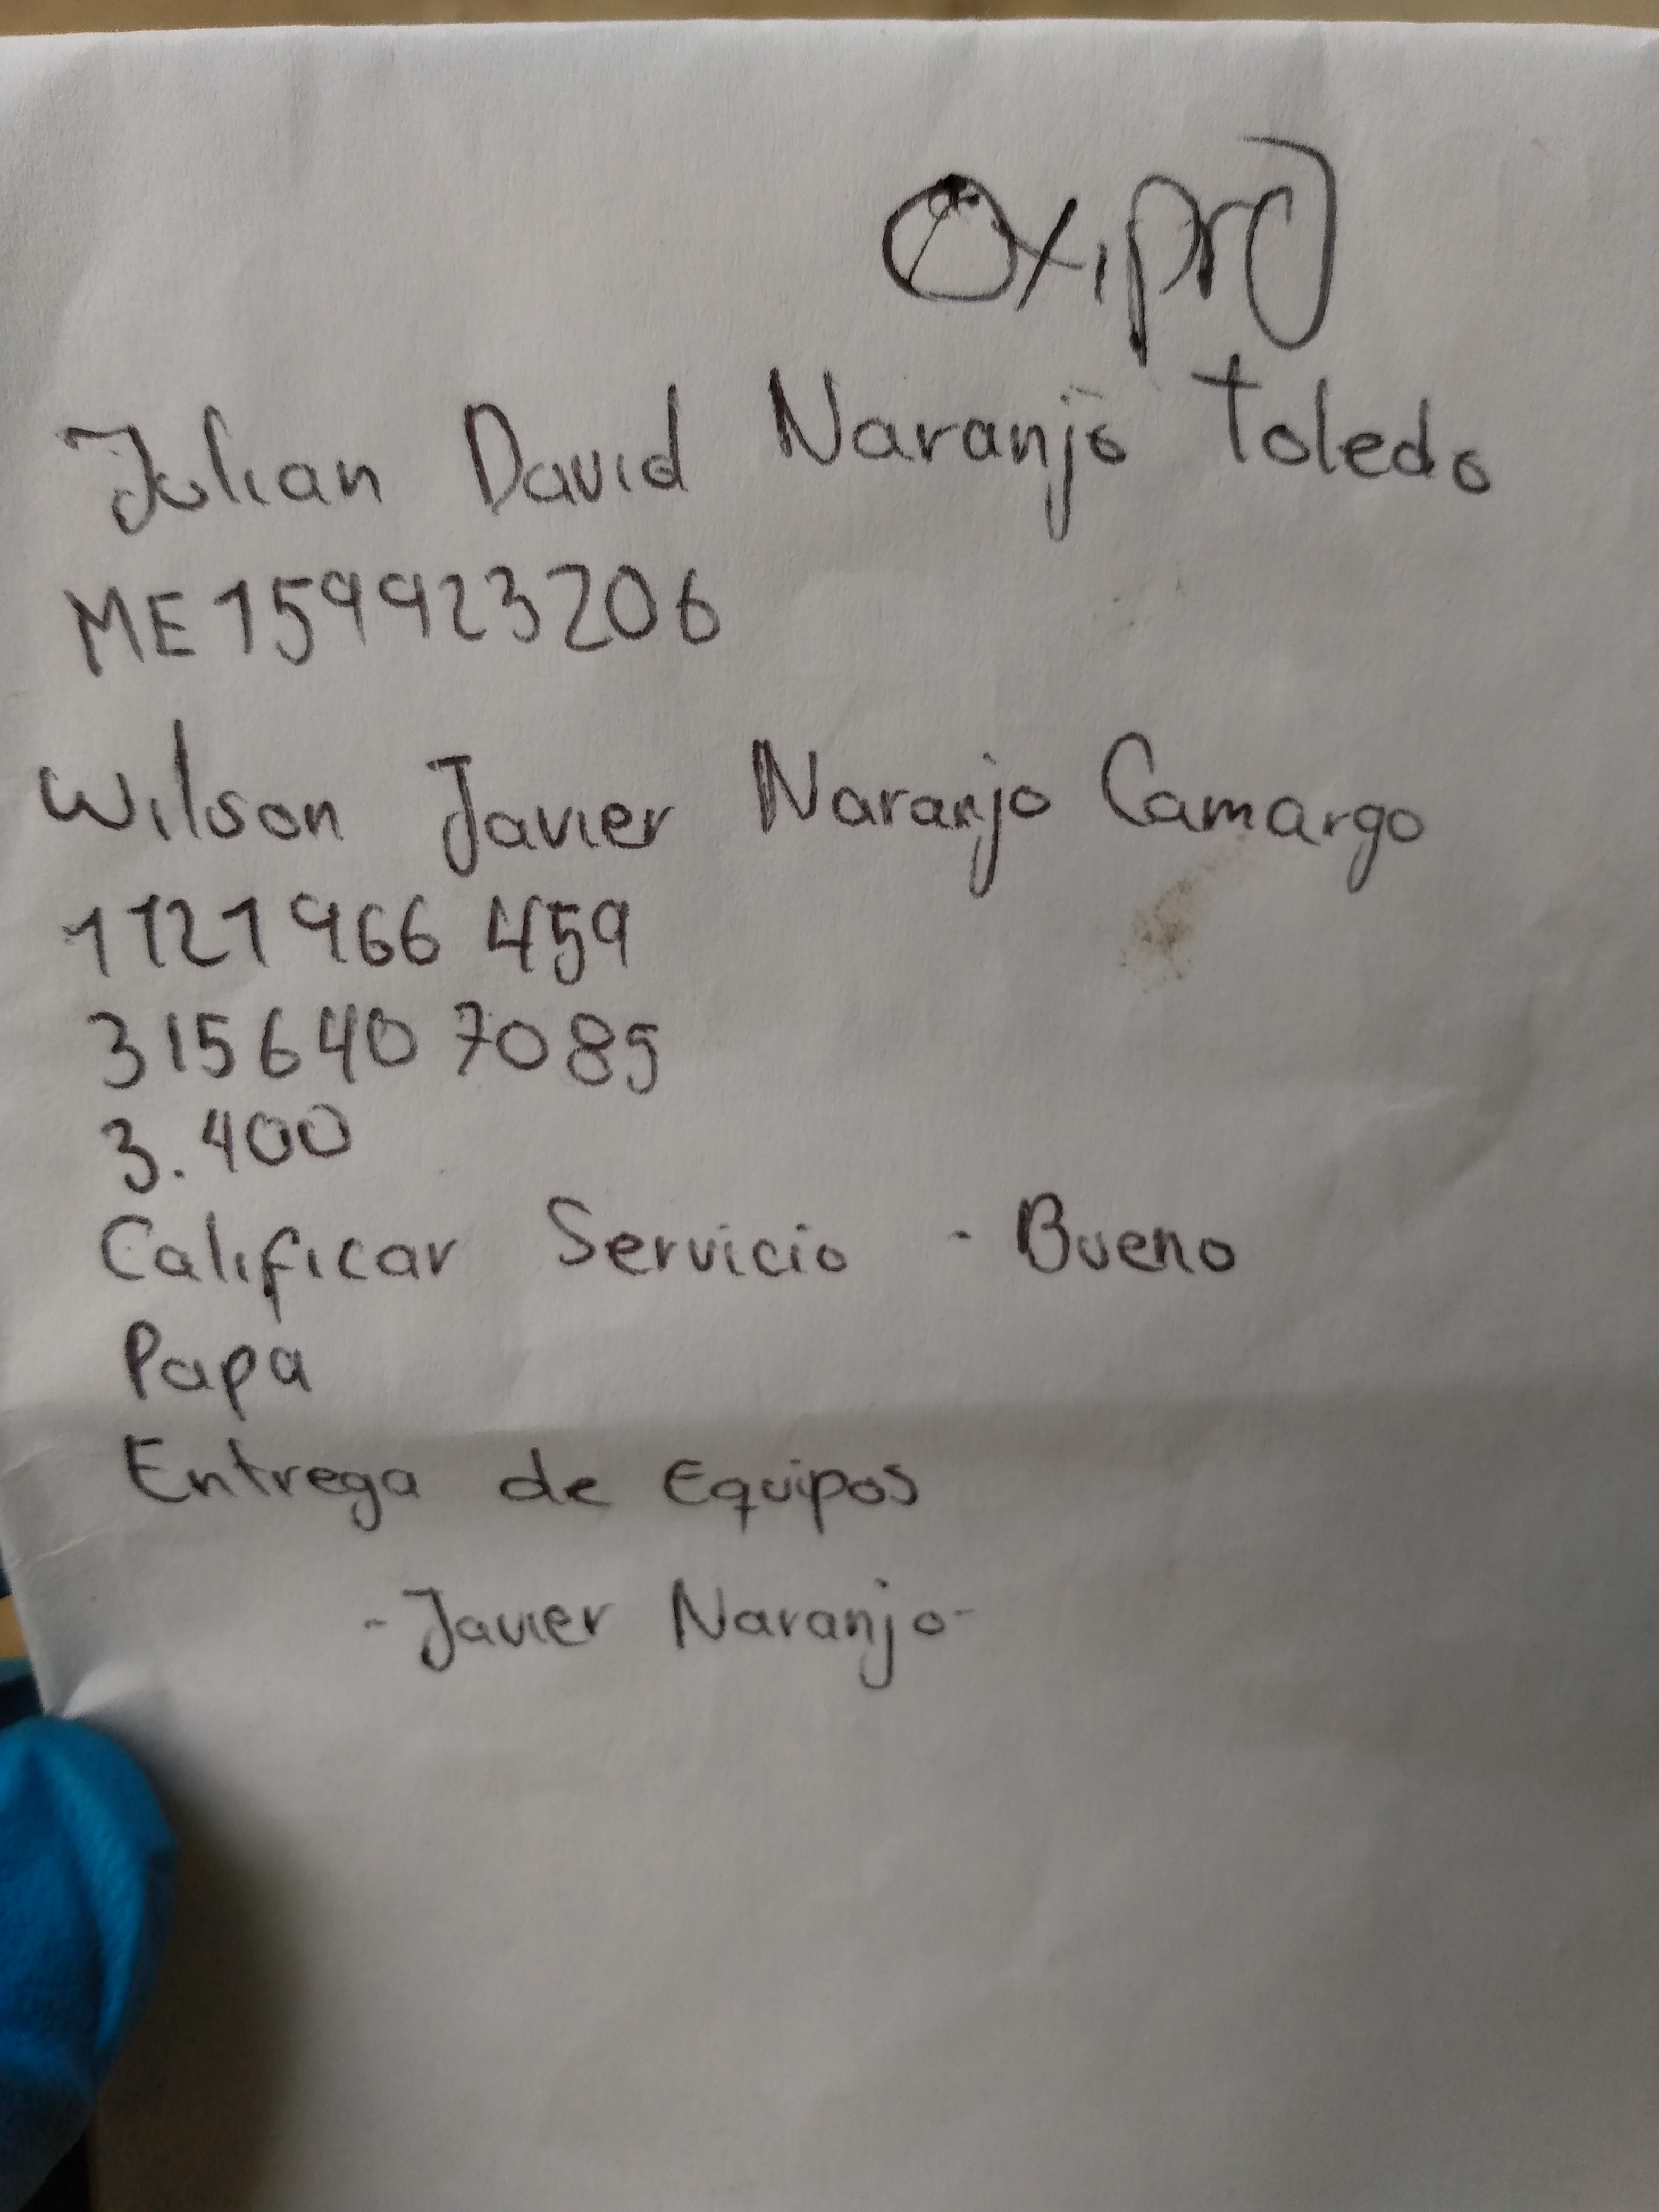 Oxipro
Julian David Naranjo Toledo
ME159923206
Wilson Javier Naranjo Camargo
1121966 459
315640 7085
3.400
Calificar Servicio - Bueno
Papa
Entrega de Equipos
- Javier Naranjo -